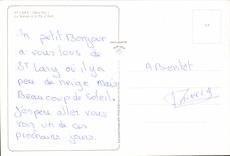 ST LARY
'n petit Bonjour
à vous tous de
ST Lary où il y a
peu de neige mais
Beaucoup de Soleil.
J'espère aller vous
voir un de ces
prochains jours.
A Bientot